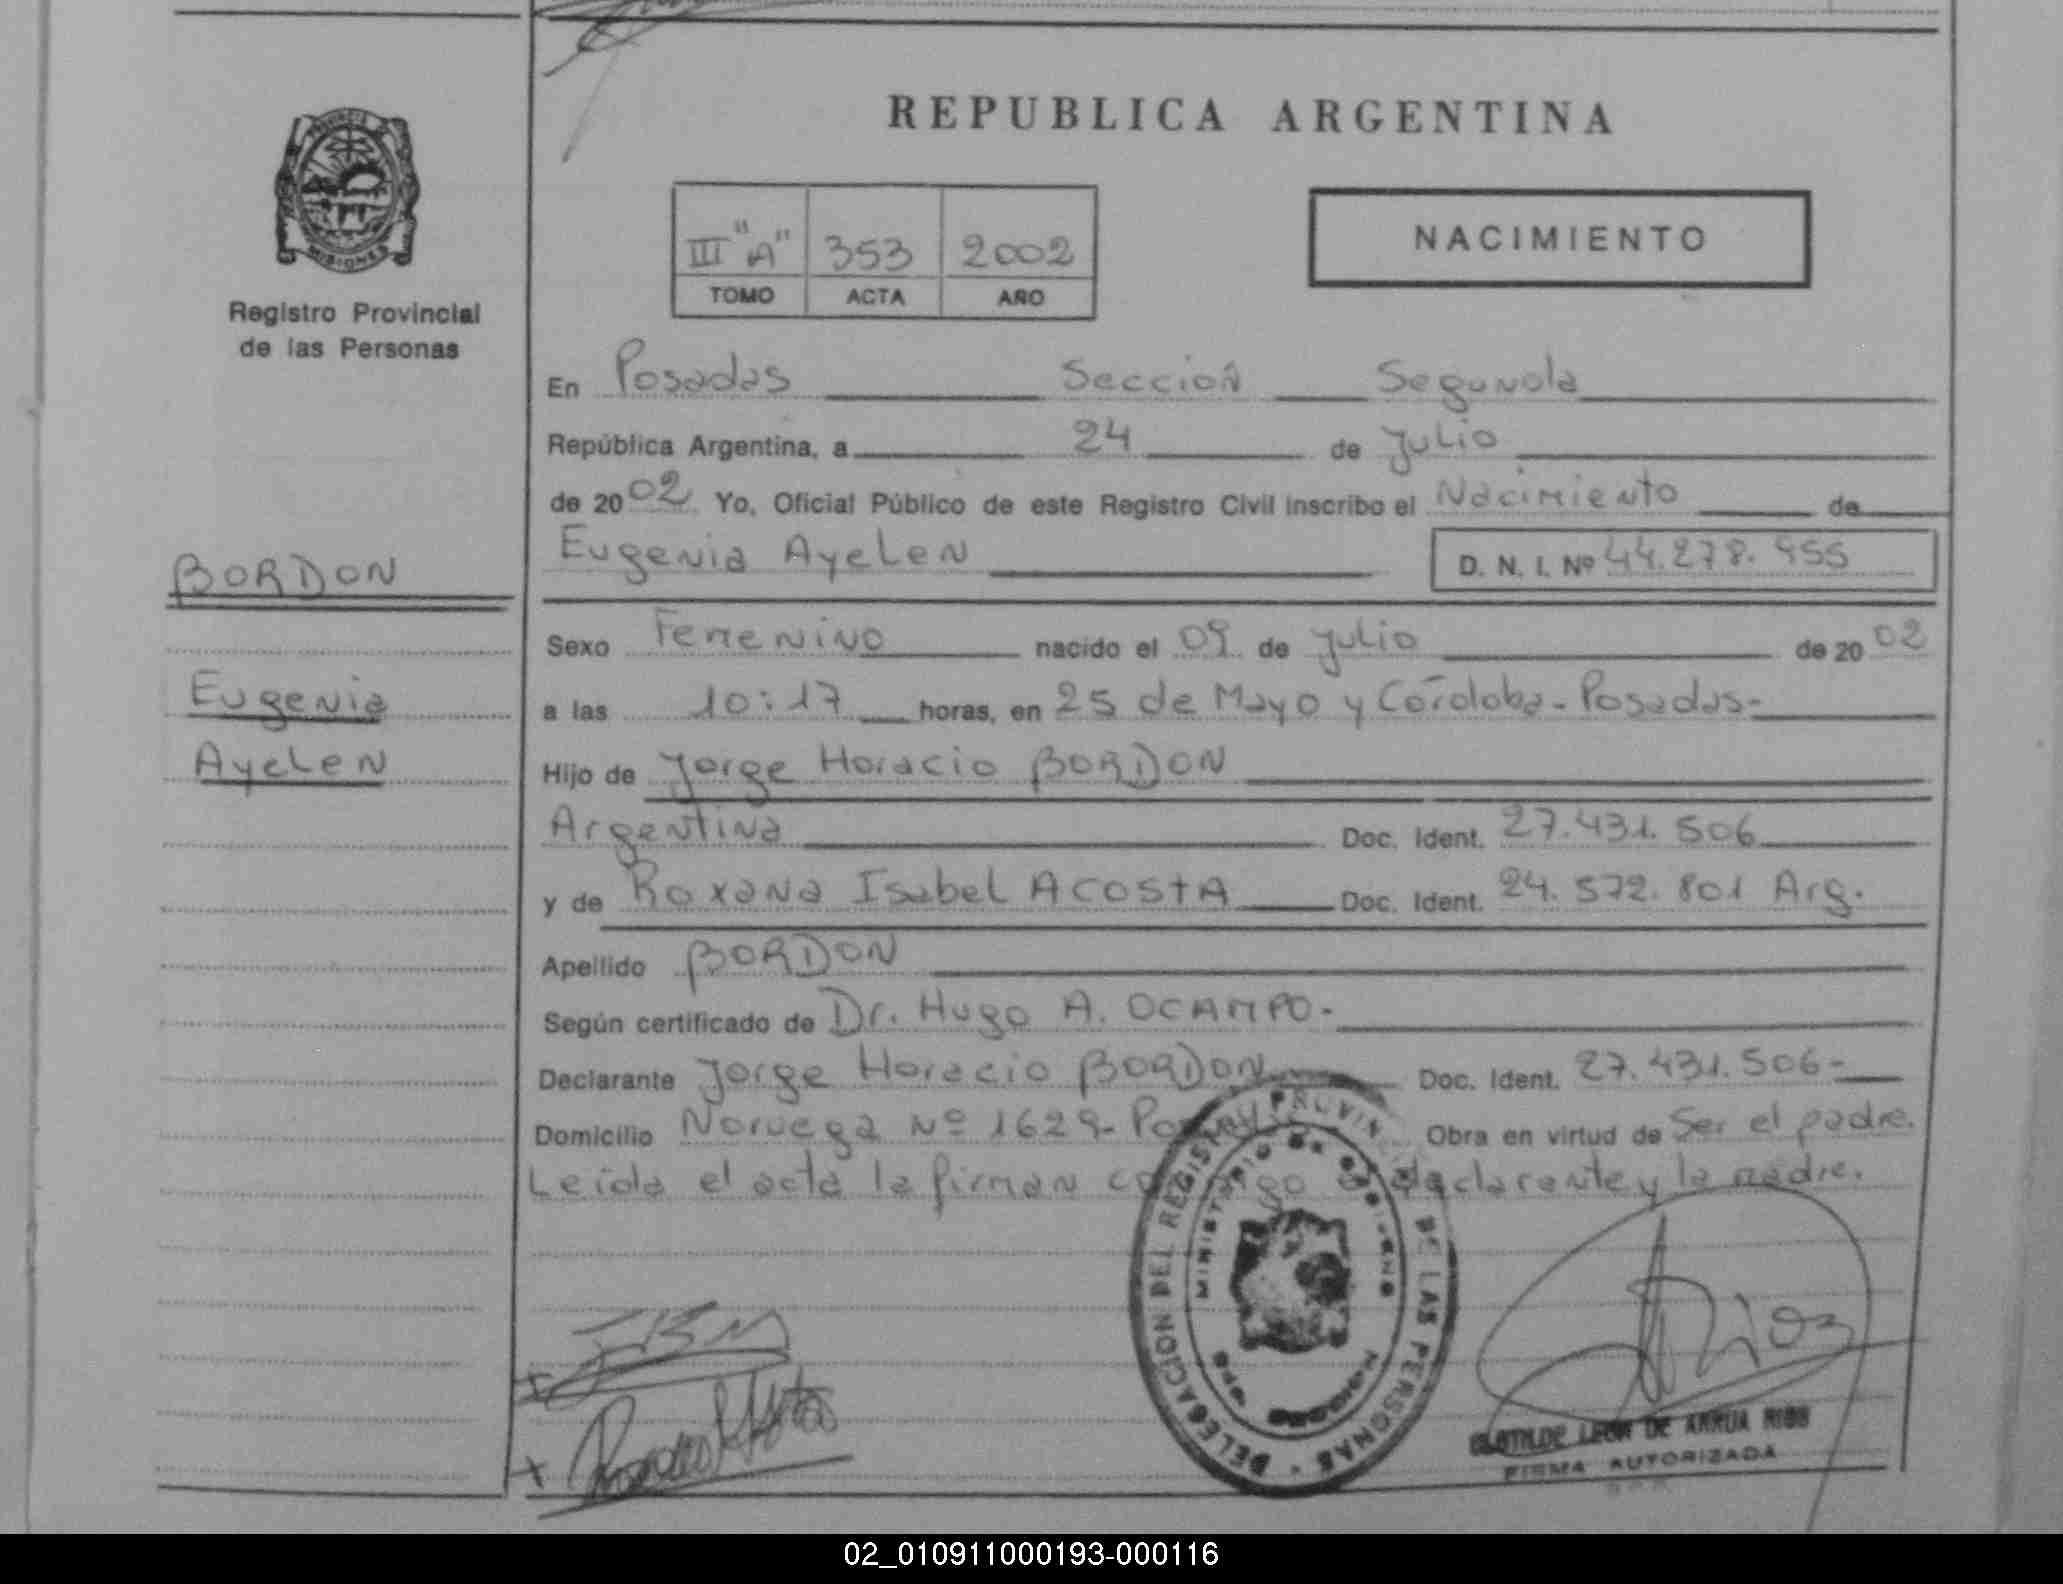 REPUBLICA ARGENTINA
PROVINCIA DE
MISIONES
Registro Provincial
de las Personas
III "A" 353 2002
TOMO ACTA AÑO
NACIMIENTO
En Posadas Sección Segunda
República Argentina, a 24 de Julio
de 2002 Yo, Oficial Público de este Registro Civil inscribo el Nacimiento de
Eugenia Ayelen D. N. I. Nº 44.278.955
BORDON
Eugenia
Ayelen
Sexo Femenino nacido el 09 de Julio de 2002
a las 10:17 horas, en 25 de Mayo y Córdoba-Posadas-
Hijo de Jorge Horacio BORDON
Argentina Doc. Ident. 27.431.506
y de Roxana Isabel ACOSTA Doc. Ident. 24.572.801 Arg.
Apellido BORDON
Según certificado de Dr. Hugo A. OCAMPO.-
Declarante Jorge Horacio BORDON Doc. Ident. 27.431.506-
Domicilio Noruega Nº 1629- Obra en virtud de Ser el padre.
Leída el acta la firman declarante y la madre.
DELEGACION DEL REGISTRO PROVINCIAL DE LAS PERSONAS
MINISTERIO DE GOBIERNO
CLOTILDE LEON DE ARRUA RIOS
FIRMA AUTORIZADA
02_010911000193-000116